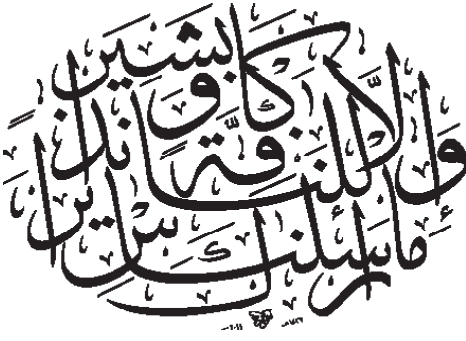 وَمَا أَرْسَلْنَاكَ إِلَّا كَافَّةً لِلنَّاسِ بَشِيرًا وَنَذِيرًا